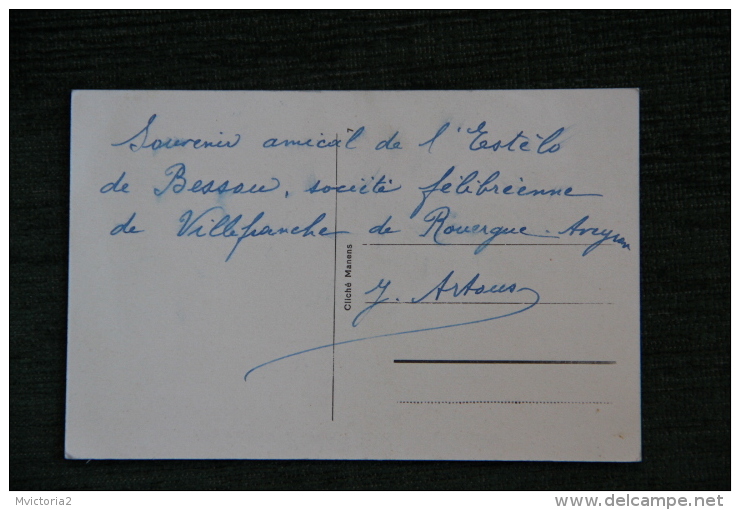 Souvenir amical de l'Estélo
de Bessou, société félibréenne
de Villefranche de Rouergue - Aveyron
J. Artous
Cliché Manens
Mvictoria2
delcampe.net